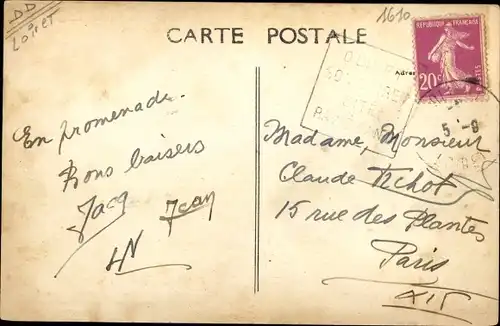 DD
Loiret
1610
CARTE POSTALE
REPUBLIQUE FRANÇAISE
POSTES
20c
Adre
5 - 9
En promenade.
Bons baisers
Jacq Jean
Madame, Monsieur
Claude Tichot
15 rue des Plantes
Paris
XIV